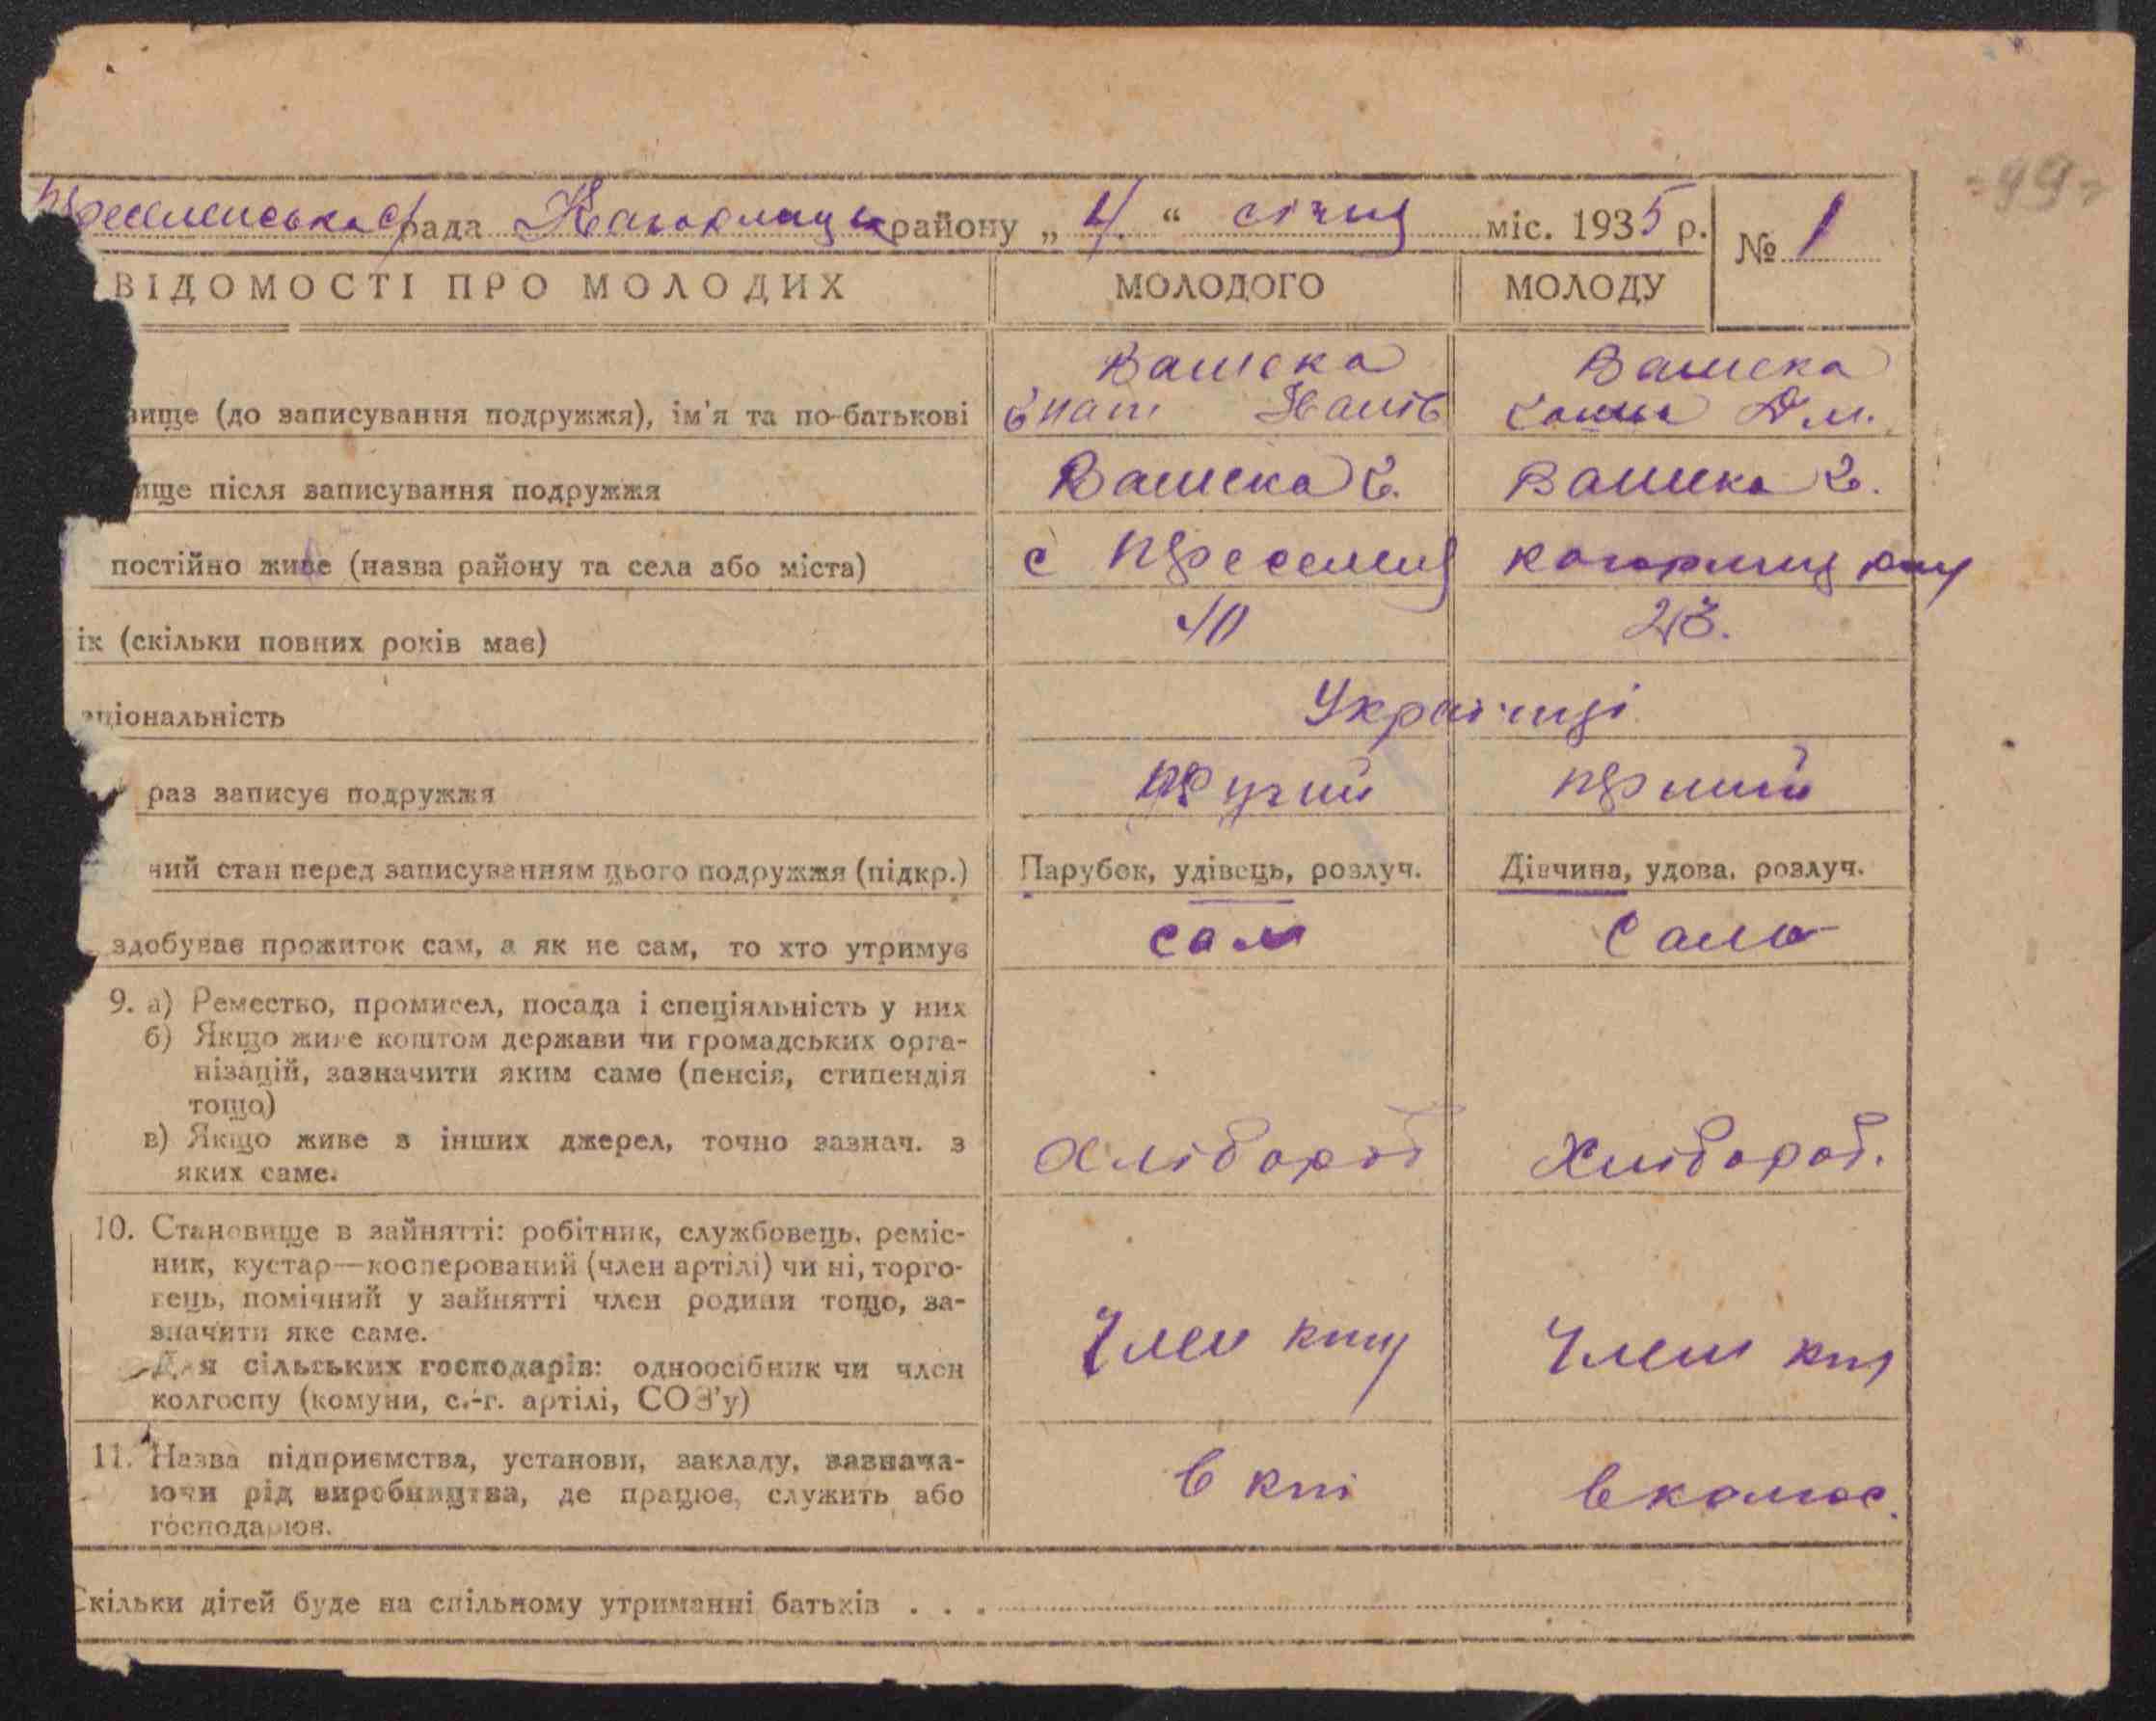 рада Кагарлицьк району „ 4 “ січня міс. 1935 р. № 1
ВІДОМОСТІ ПРО МОЛОДИХ МОЛОДОГО МОЛОДУ
Вашека Вашека
вище (до записування подружжя), ім'я та по-батькові Гнат Іванів Дм.
ище після записування подружжя Вашека Г. Вашека
постійно живе (назва району та села або міста) с
ік (скільки повних років має) 40 23.
аціональність Українці
раз записує подружжя другий перший
ний стан перед записуванням цього подружжя (підкр.) Парубок, удівець, розлуч. Дівчина, удова, розлуч.
здобуває прожиток сам, а як не сам, то хто утримує сам сама
9. а) Ремество, промисел, посада і спеціяльність у них
б) Якщо живе коштом держави чи громадських орга-
нізацій, зазначити яким саме (пенсія, стипендія
тощо)
в) Якщо живе з інших джерел, точно зазнач. з
яких саме. Хлібороб Хлібороб.
10. Становище в зайнятті: робітник, службовець, реміс-
ник, кустар—кооперований (член артілі) чи ні, торго-
вець, помічний у зайнятті член родини тощо, за-
значити яке саме.
Для сільських господарів: одноосібник чи член
колгоспу (комуни, с.-г. артілі, СОЗ'у) Член Член
11. Назва підприємства, установи, закладу, зазнача-
ючи рід виробництва, де працює, служить або
господарює. в в колгос.
Скільки дітей буде на спільному утриманні батьків . . .